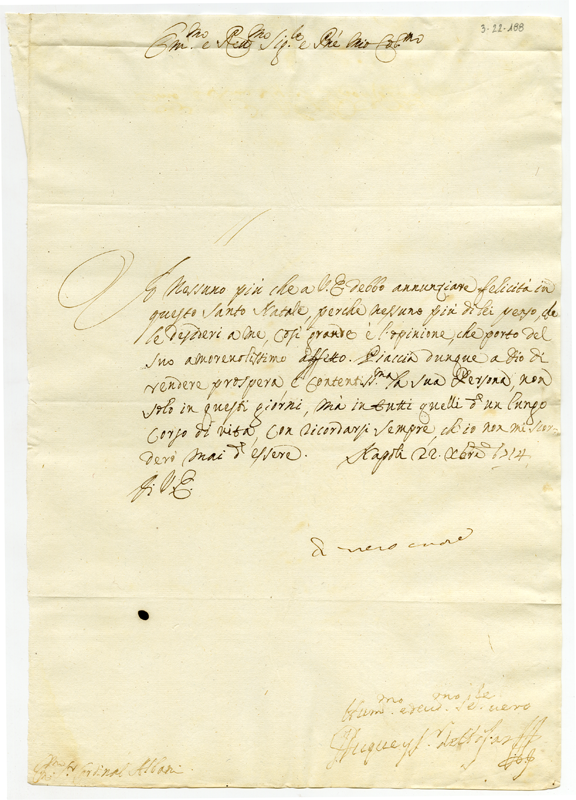 3-22-188
Em.mo e Rev.mo Sig.re e Pne mio Coll.mo
A Nessuno più che a V.E. debbo annunziare felicità in
questo Santo Natale, perche nessuno più di lei penso, che
le desideri a me, così grande è l'opinione, che porto del
suo amorevolissimo affetto. Piaccia dunque a Dio di
rendere prospera, e contentiss.ma la sua Persona, non
solo in questi giorni, mà in tutti quelli d'un lungo
corso di vita, con ricordarsi sempre, ch'io non mi scor-
derò mai d'essere. Napoli 22. Xbre 1714.
Di V.E.
di vero cuore
Hum.mo
vero
Cardinal Albani